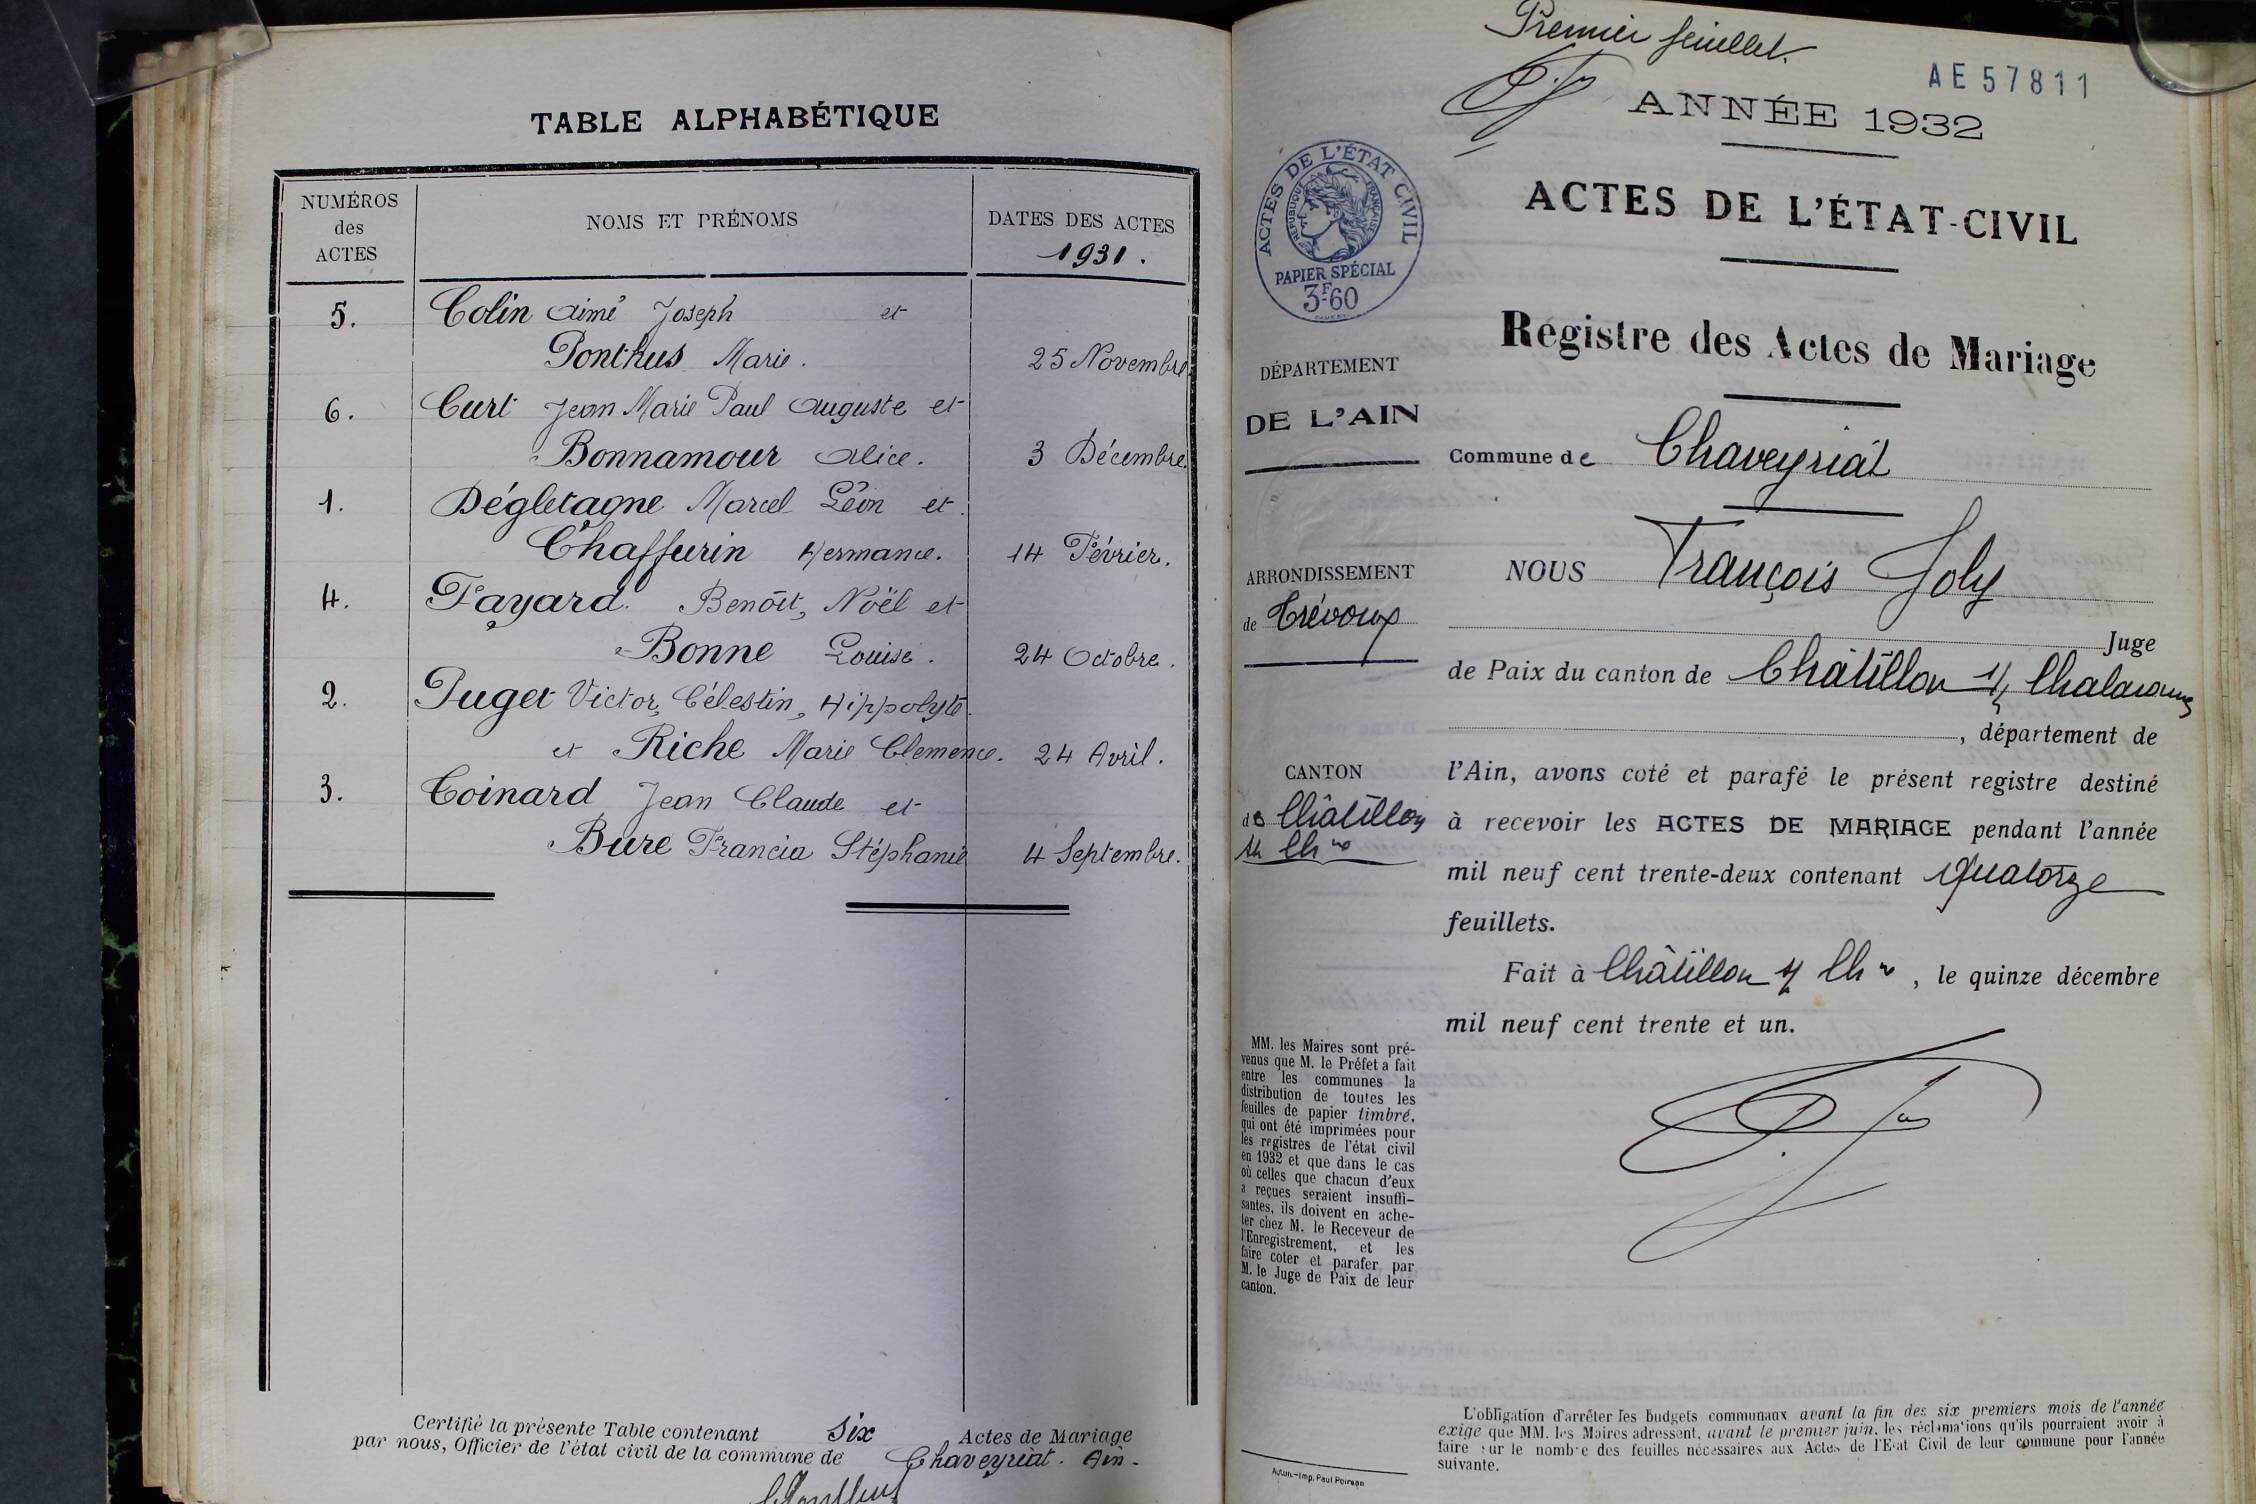 TABLE ALPHABÉTIQUE
NUMÉROS des ACTES
NOMS ET PRÉNOMS
DATES DES ACTES
1931.
5. Colin Aimé Joseph et
Ponthus Marie. 25 Novembre
6. Curt Jean Marie Paul Auguste et
Bonnamour Alice. 3 Décembre.
1. Dégletagne Marcel Léon et
Chaffurin Hermance. 14 Février.
4. Fayard Benoît, Noël et
Bonne Louise. 24 Octobre.
2. Puget Victor, Célestin, Hippolyte
et Riche Marie Clemence. 24 Avril.
3. Coinard Jean Claude et
Bure Francia Stéphanie 4 Septembre.
Certifié la présente Table contenant six Actes de Mariage
par nous, Officier de l'état civil de la commune de Chaveyriat. Ain.
Premier feuillet.
AE57811
ANNÉE 1932
ACTES DE L'ÉTAT CIVIL
RÉPUBLIQUE FRANÇAISE
PAPIER SPÉCIAL
3F60
ACTES DE L'ÉTAT-CIVIL
Registre des Actes de Mariage
DÉPARTEMENT
DE L'AIN
Commune de Chaveyriat
ARRONDISSEMENT
de Trévoux
NOUS François Joly
Juge
de Paix du canton de Châtillon s/ Chalaronne
, département de
CANTON
de Châtillon
s/ Chne
l'Ain, avons coté et parafé le présent registre destiné
à recevoir les ACTES DE MARIAGE pendant l'année
mil neuf cent trente-deux contenant quatorze
feuillets.
Fait à Châtillon s/ Chne, le quinze décembre
mil neuf cent trente et un.
MM. les Maires sont pré-
venus que M. le Préfet a fait
entre les communes la
distribution de toutes les
feuilles de papier timbré,
qui ont été imprimées pour
les registres de l'état civil
en 1932 et que dans le cas
où celles que chacun d'eux
a reçues seraient insuffi-
santes, ils doivent en ache-
ter chez M. le Receveur de
l'Enregistrement, et les
faire coter et parafer par
M. le Juge de Paix de leur
canton.
L'obligation d'arrêter les budgets communaux avant la fin des six premiers mois de l'année
exige que MM. les Maires adressent, avant le premier juin, les réclamations qu'ils pourraient avoir à
faire sur le nombre des feuilles nécessaires aux Actes de l'Etat Civil de leur commune pour l'année
suivante.
Autun.—Imp. Paul Poirson